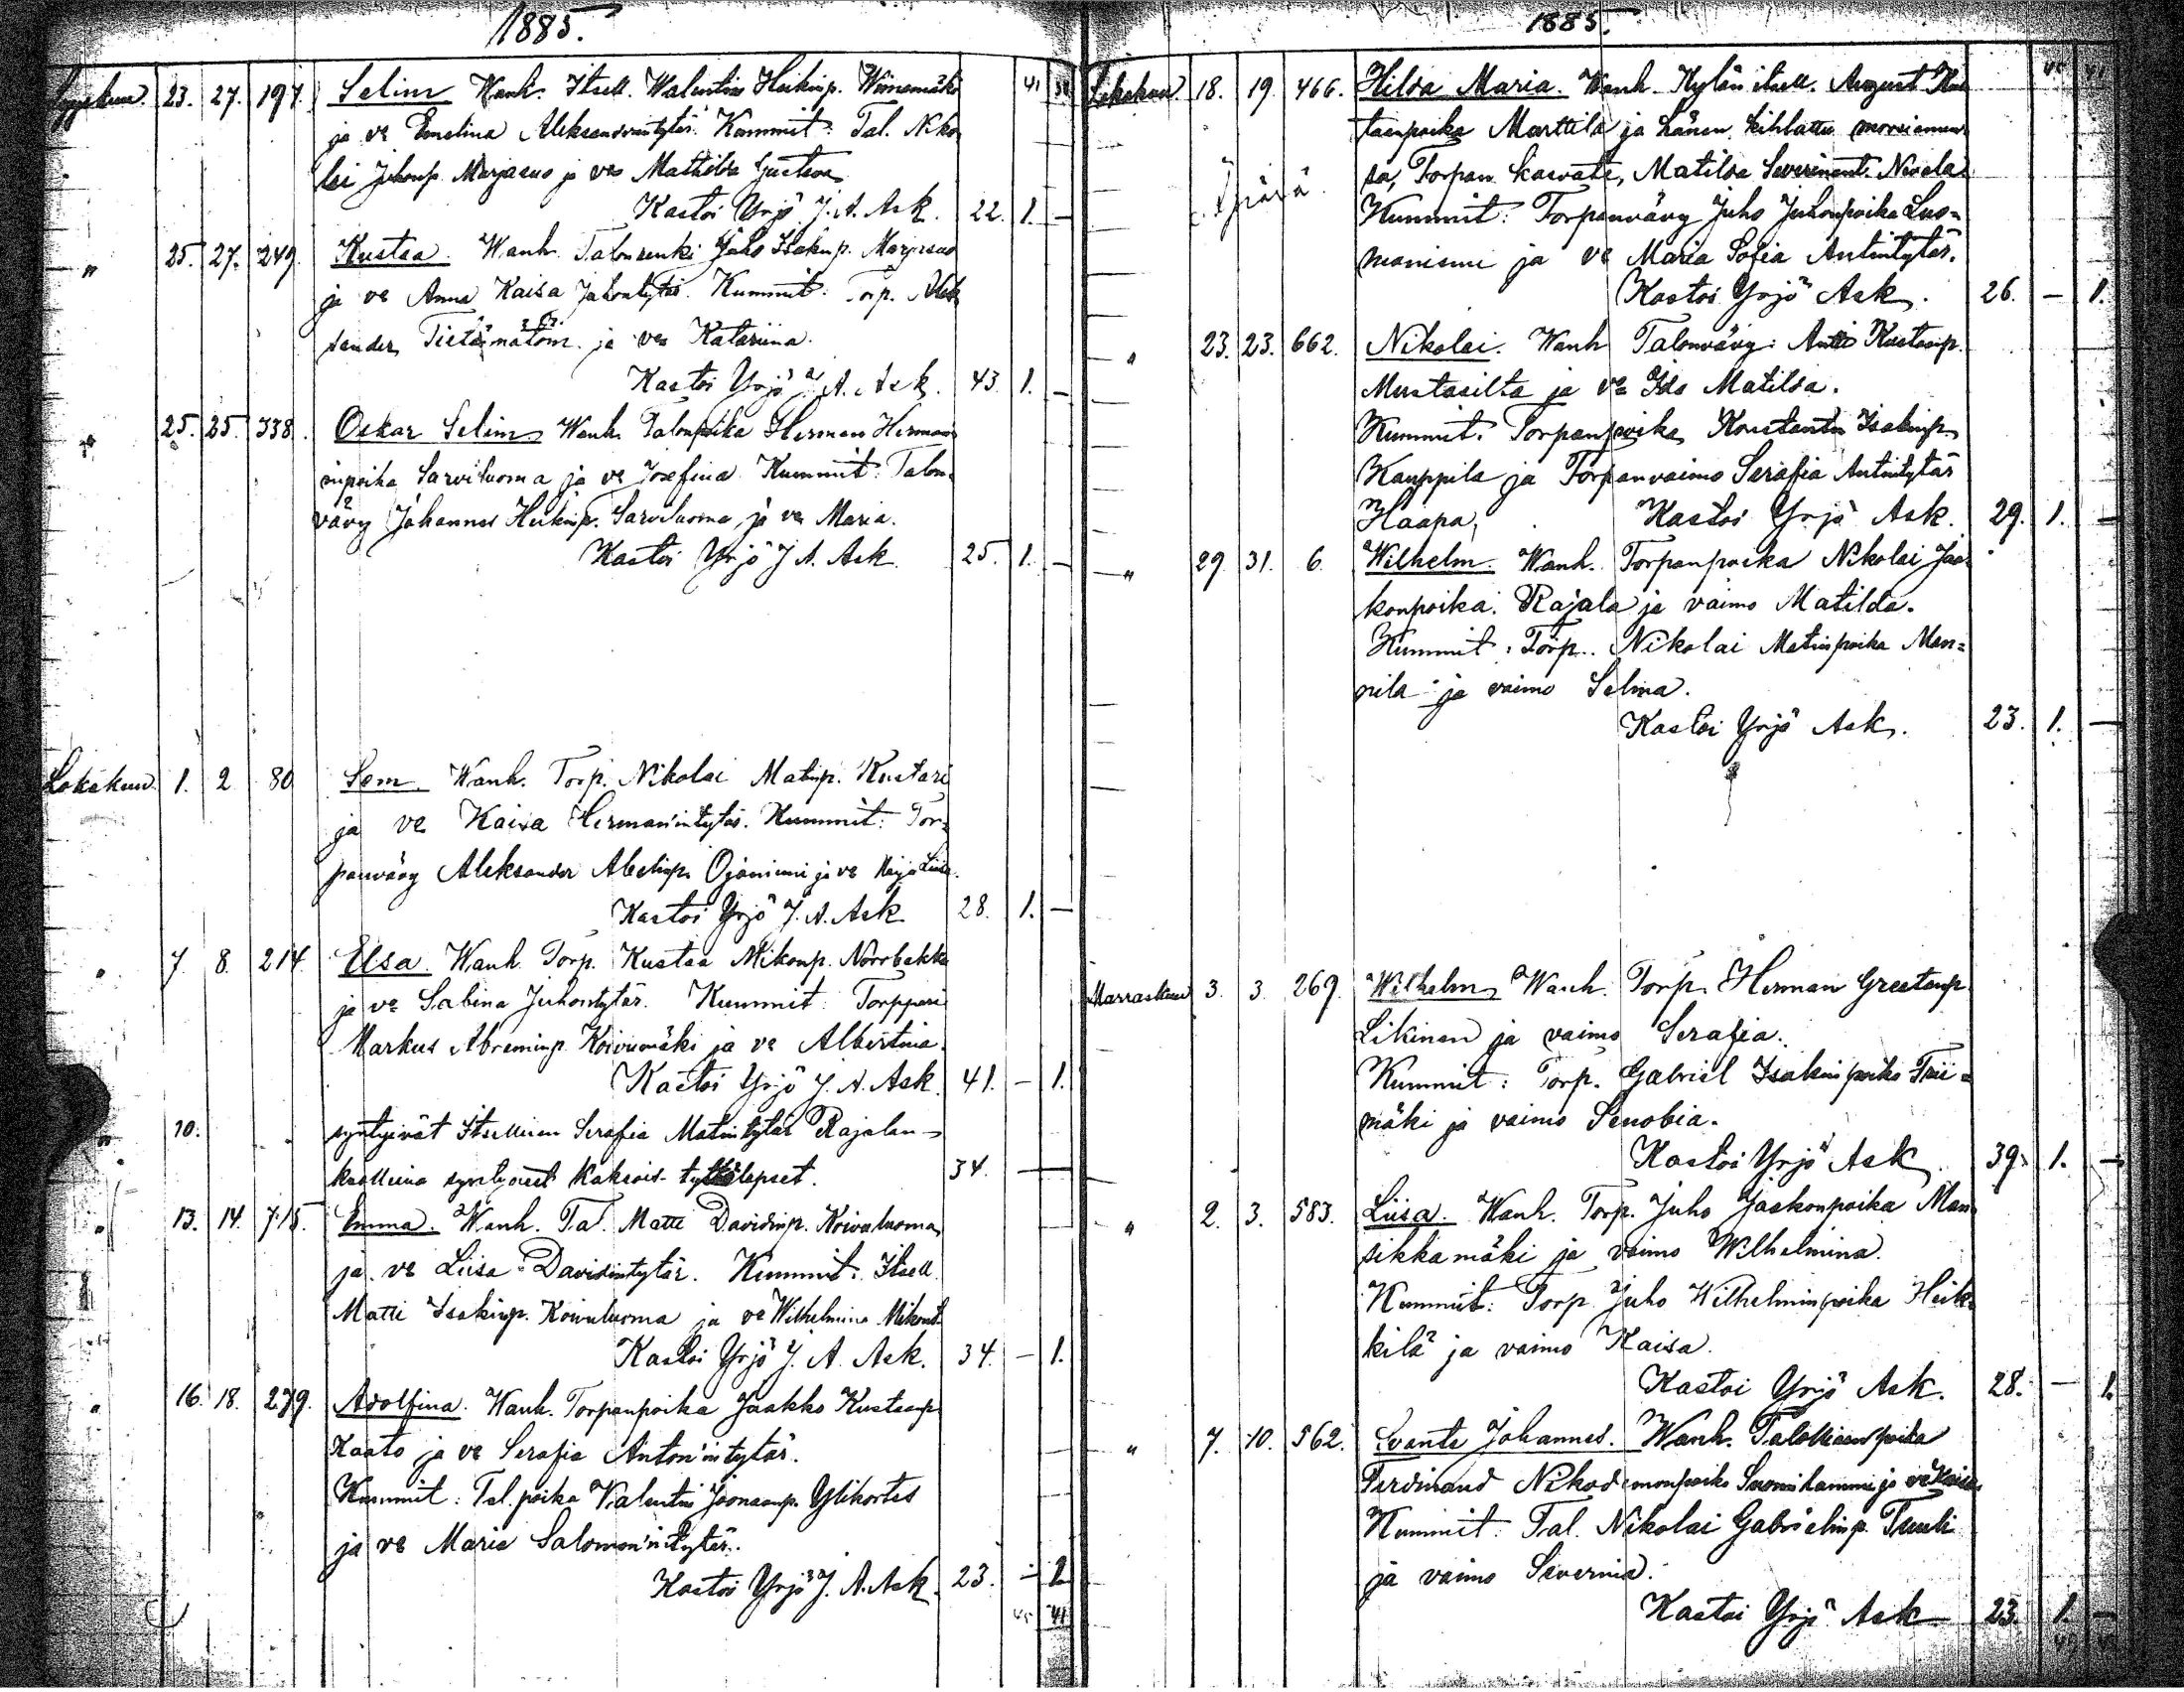 1885.
41 38
Syyskuu. 23. 27. 197. Selim Wanh. Itsell. Walentin Heikinp. Wiinamäki
ja vo Emelina Aleksanderintytär. Kummit: Tal. Niko
lai Juhonp. Marjasuo ja vo Mathilda Gustava
Kastoi Yrjö J. A. Ask. 22. 1. —
" 25. 27. 249. Kustaa. Wanh. Talonrenki Juho Isakinp. Marjasuo
ja vo Anna Kaisa Juhontytär. Kummit: Torp. Alek
sander Tietämätöin ja vo Katariina.
Kastoi Yrjö J. A. Ask. 43. 1. —
" 25. 25. 338. Oskar Selim Wanh. Talonpoika Herman Herman
inpoika Sarviluoma ja vo Josefina Kummit: Talon
vävy Johannes Heikinp. Sarviluoma ja vo Maria.
Kastoi Yrjö J. A. Ask. 25. 1. —
Lokakuu. 1. 2. 80 Sem. Wanh. Torp. Nikolai Matinp. Kustari
ja vo Kaisa Hermanintytär. Kummit: Tor-
panvävy Aleksander Abelinp. Ojaniemi ja vo Maja Liisa.
Kastoi Yrjö J. A. Ask 28. 1. —
" 7. 8. 214 Elsa. Wanh. Torp. Kustaa Mikonp. Norrbakka
ja vo Sabina Juhontytär. Kummit: Torppari
Markus Abraminp. Koivumäki ja vo Albertina.
Kastoi Yrjö J. A. Ask. 41. — 1.
" 10. syntyivät Itsellisen Serafia Matintytär Rajalan
kuolleina syntyneet kaksois-tyttölapset. 34. —
" 13. 14. 715. Emma. Wanh. Tal. Matti Davidinp. Koivuluoma
ja vo Liisa Davidintytär. Kummit: Itsell.
Matti Isakinp. Koivuluoma ja vo Wilhelmina Mikont.
Kastoi Yrjö J. A. Ask. 34. — 1.
" 16. 18. 279. Adolfina. Wanh. Torpanpoika Jaakko Kustaanp.
Kaato ja vo Serafia Anton'intytär.
Kummit: Tal. poika Valentin Joonaanp. Ylikortes
ja vo Maria Salomon'intytär.
Kastoi Yrjö J. A. Ask. 23. — 1.
45 41
1885.
45 41
Lokakuu. 18. 19. 466. Hilda Maria. Wanh. Kylän itsell. August Kus
taanpoika Marttila ja hänen kihlattu morsiamen
Äpärä sa, Torpan kasvate, Matilda Severinint. Nevala.
Kummit: Torpanvävy Juho Juhonpoika Luo=
maniemi ja vo Maria Sofia Antintytär.
Kastoi Yrjö Ask. 26. — 1.
" 23. 23. 662. Nikolai. Wanh Talonvävy: Antti Kustaanp.
Mustasilta ja vo Ida Matilda.
Kummit. Torpanpoika Konstantin Isakinp.
Kauppila ja Torpanvaimo Serafia Antintytär
Haapa, Kastoi Yrjö Ask. 29. 1. —
" 29. 31. 6. Wilhelm. Wanh. Torpanpoika Nikolai Jaa-
konpoika Rajala ja vaimo Matilda.
Kummit: Torp. Nikolai Matinpoika Man=
nila ja vaimo Selma.
Kastoi Yrjö Ask. 23. 1. —
Marraskuu 3. 3. 269. Wilhelm Wanh. Torp. Herman Greetanp
Likinen ja vaimo Serafia.
Kummit: Torp. Gabriel Isakinpoika Trii=
mäki ja vaimo Senobia.
Kastoi Yrjö Ask. 39. 1. —
" 2. 3. 583. Liisa. Wanh. Torp. Juho Jaakonpoika Man-
sikkamäki ja vaimo Wilhelmina.
Kummit: Torp Juho Wilhelminpoika Heik-
kilä ja vaimo Kaisa.
Kastoi Yrjö Ask. 28. — 1.
" 7. 10. 562. Svante Johannes. Wanh. Talollisenpoika
Ferdinand Nikodemonpoika Luomihammi ja vo Kaisa.
Kummit: Tal. Nikolai Gabrielinp. Tuuli
ja vaimo Severina.
Kastoi Yrjö Ask 23. 1. —